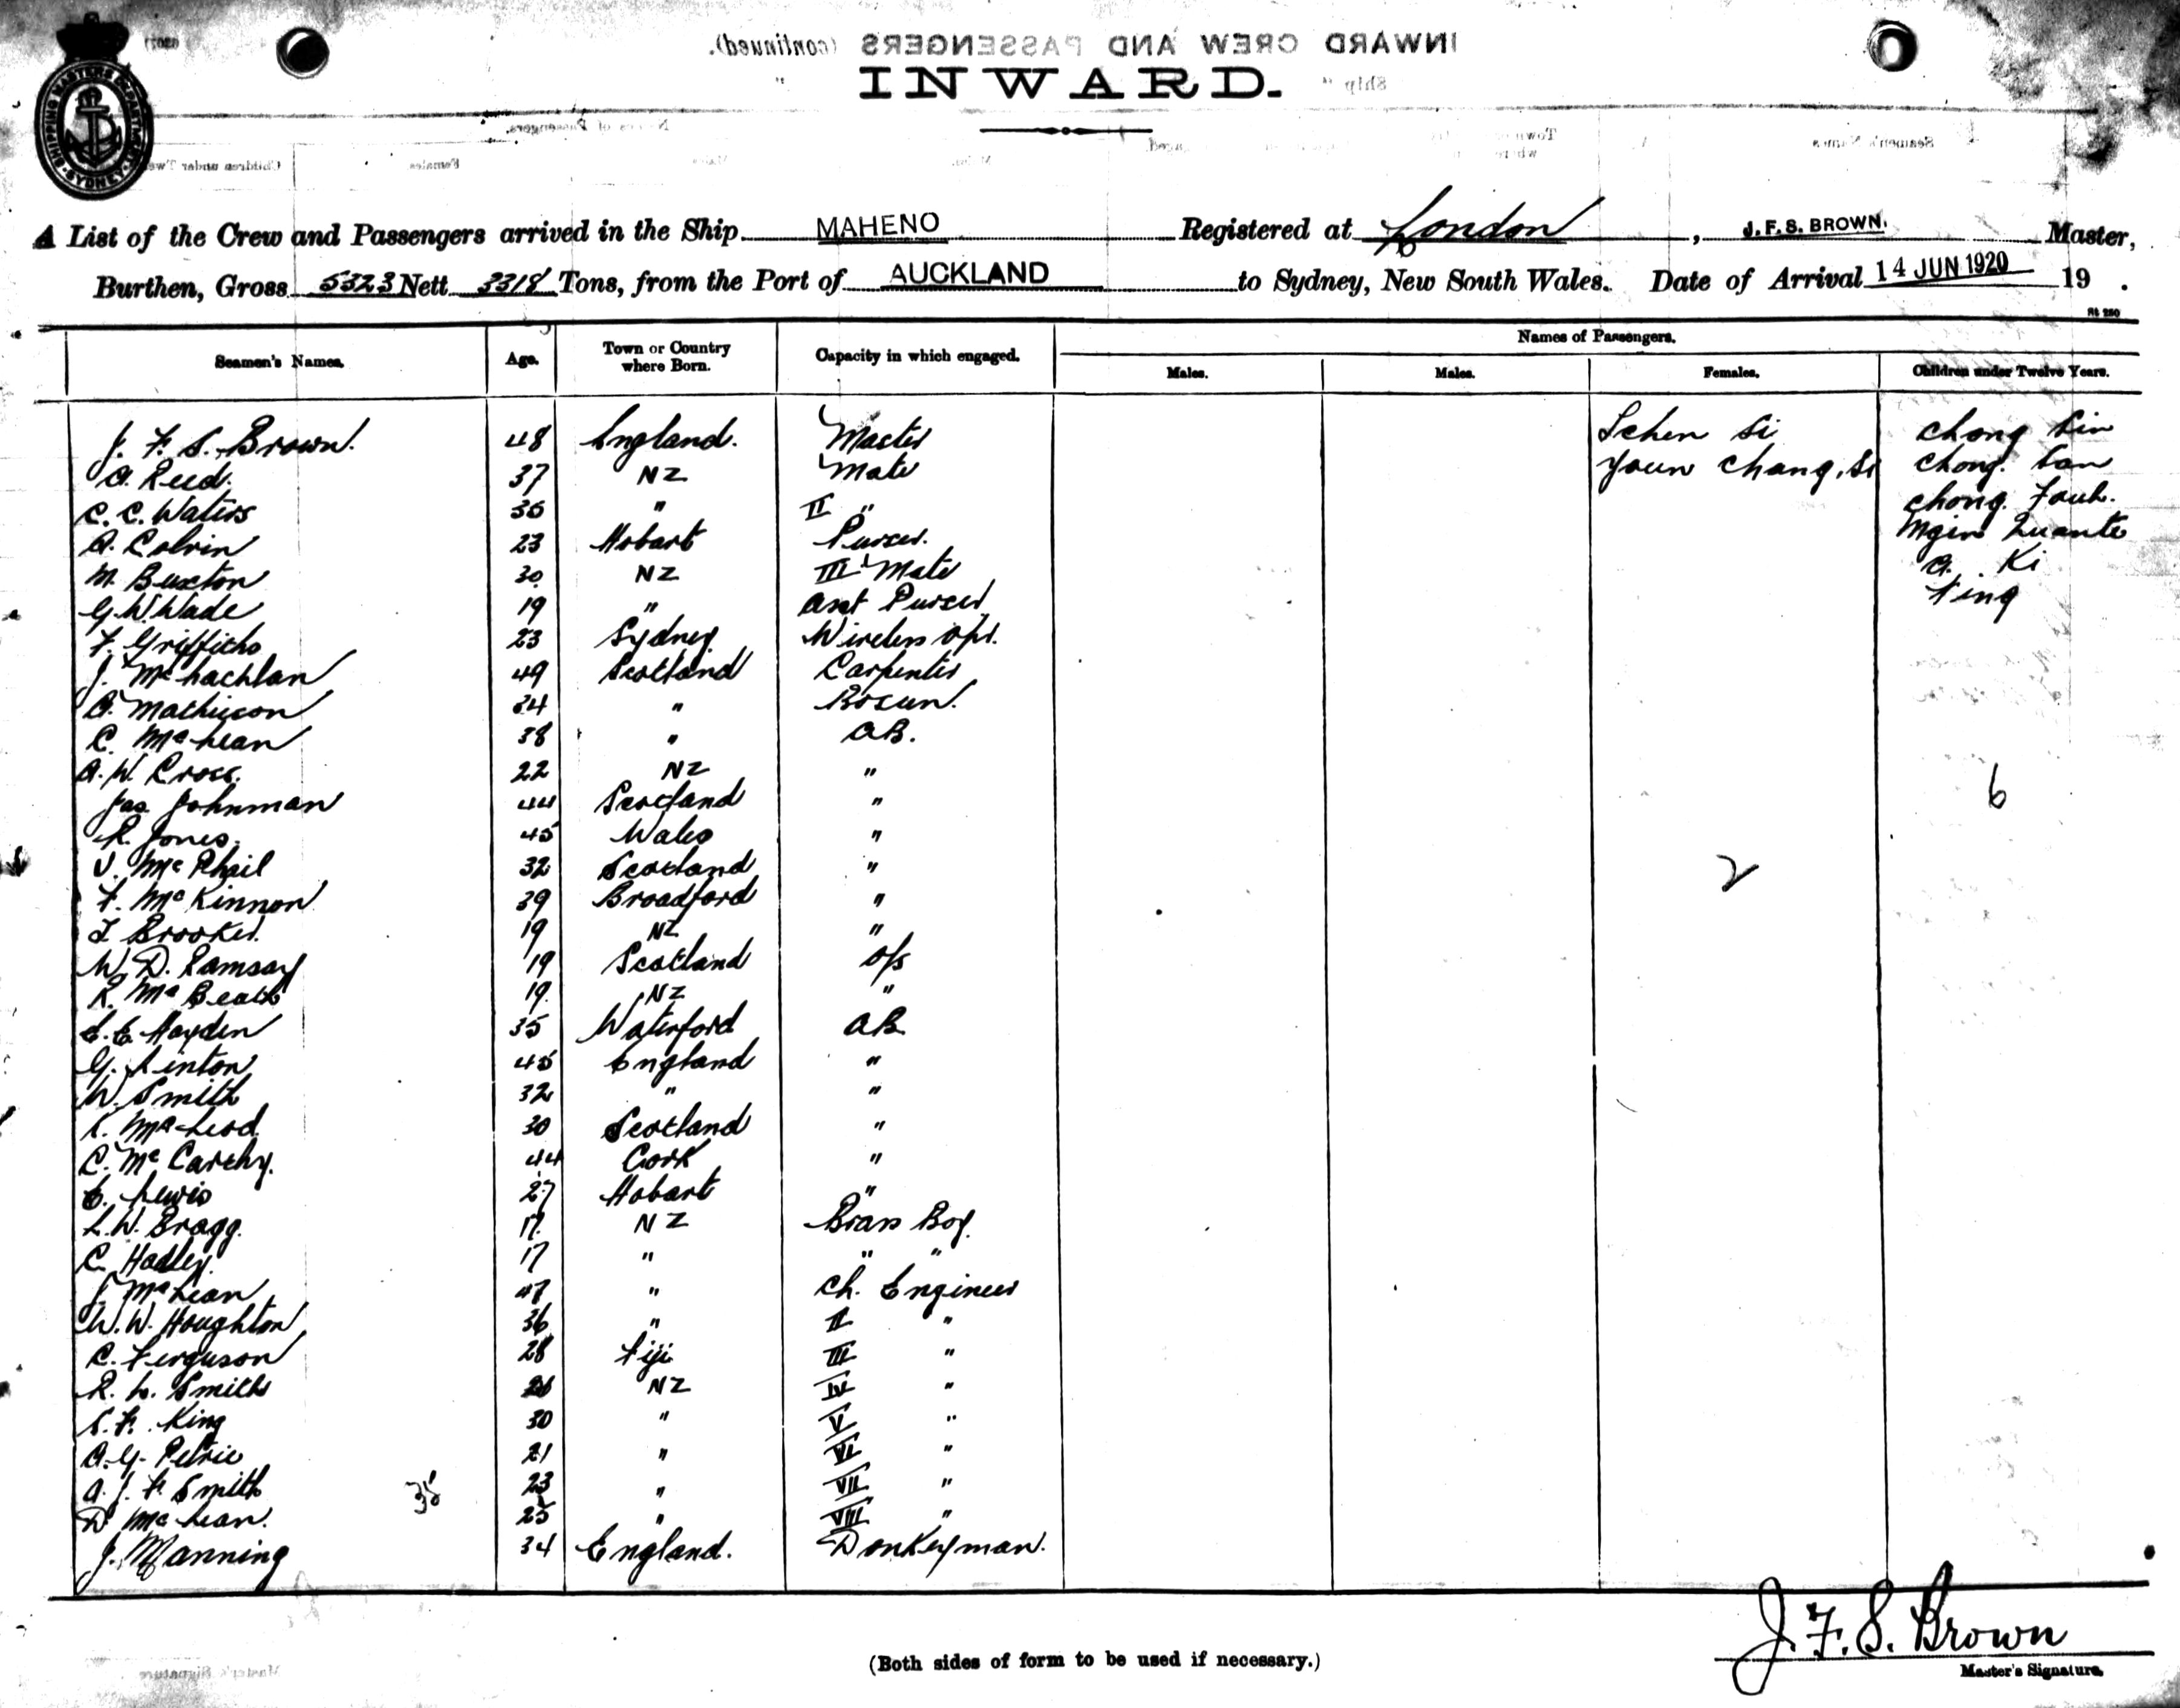 INWARD CREW AND PASSENGERS (continued).
INWARD.
SHIPPING MASTERS DEPARTMENT SYDNEY
A List of the Crew and Passengers arrived in the Ship MAHENO Registered at London, J. F. S. BROWN. Master,
Burthen, Gross 5323 Nett 3318 Tons, from the Port of AUCKLAND to Sydney, New South Wales. Date of Arrival 14 JUN 1920 19 .
Names of Passengers.
Seamen's Names. Age. Town or Country where Born. Capacity in which engaged. Males. Males. Females. Children under Twelve Years.
J. F. S. Brown. 48 England. Master Schen Si Chong Sin
A. Reed. 37 NZ Mate Youn Chang, Si Chong.
C. C. Waters 35 " II " Chong.
A. Colvin 23 Hobart Purser.
M. Buxton 30 NZ III Mate A. Ki
G. W. Wade 19 " Asst Purser
F. Griffiths 23 Sydney Wireless Opr.
J. McLachlan 49 Scotland Carpenter
A. Mathieson 34 " Bosun.
C. McLean 38 " AB.
A. W. Cross. 22 NZ "
Jas Johnman 44 Scotland " 6
R. Jones. 45 Wales "
J. McPhail 32 Scotland " 2
F. McKinnon 39 Broadford "
T. Brooker. 19 NZ "
W. D. Ramsay 19 Scotland O/S
R. McBeath 19 NZ "
E. E. Hayden 35 Waterford AB
G. Linton 45 England "
W. Smith 32 " "
McLeod 30 Scotland "
C. McCarthy. 44 Cork "
E. Lewis 27 Hobart "
L. W. Bragg. 17 NZ Brass Boy.
C. Hadley. 17 " " "
J. McLean 47 " Ch. Engineer
W. W. Houghton 36 " II "
C. Ferguson 28 Fiji III "
R. L. Smith 26 NZ IV "
S. F. King 30 " V "
A. G. Petrie 21 " VI "
A. J. F. Smith 35 23 " VII "
D. McLean. 25 " VIII "
J. Manning 34 England. Donkeyman.
J. F. S. Brown
(Both sides of form to be used if necessary.)
Master's Signature.